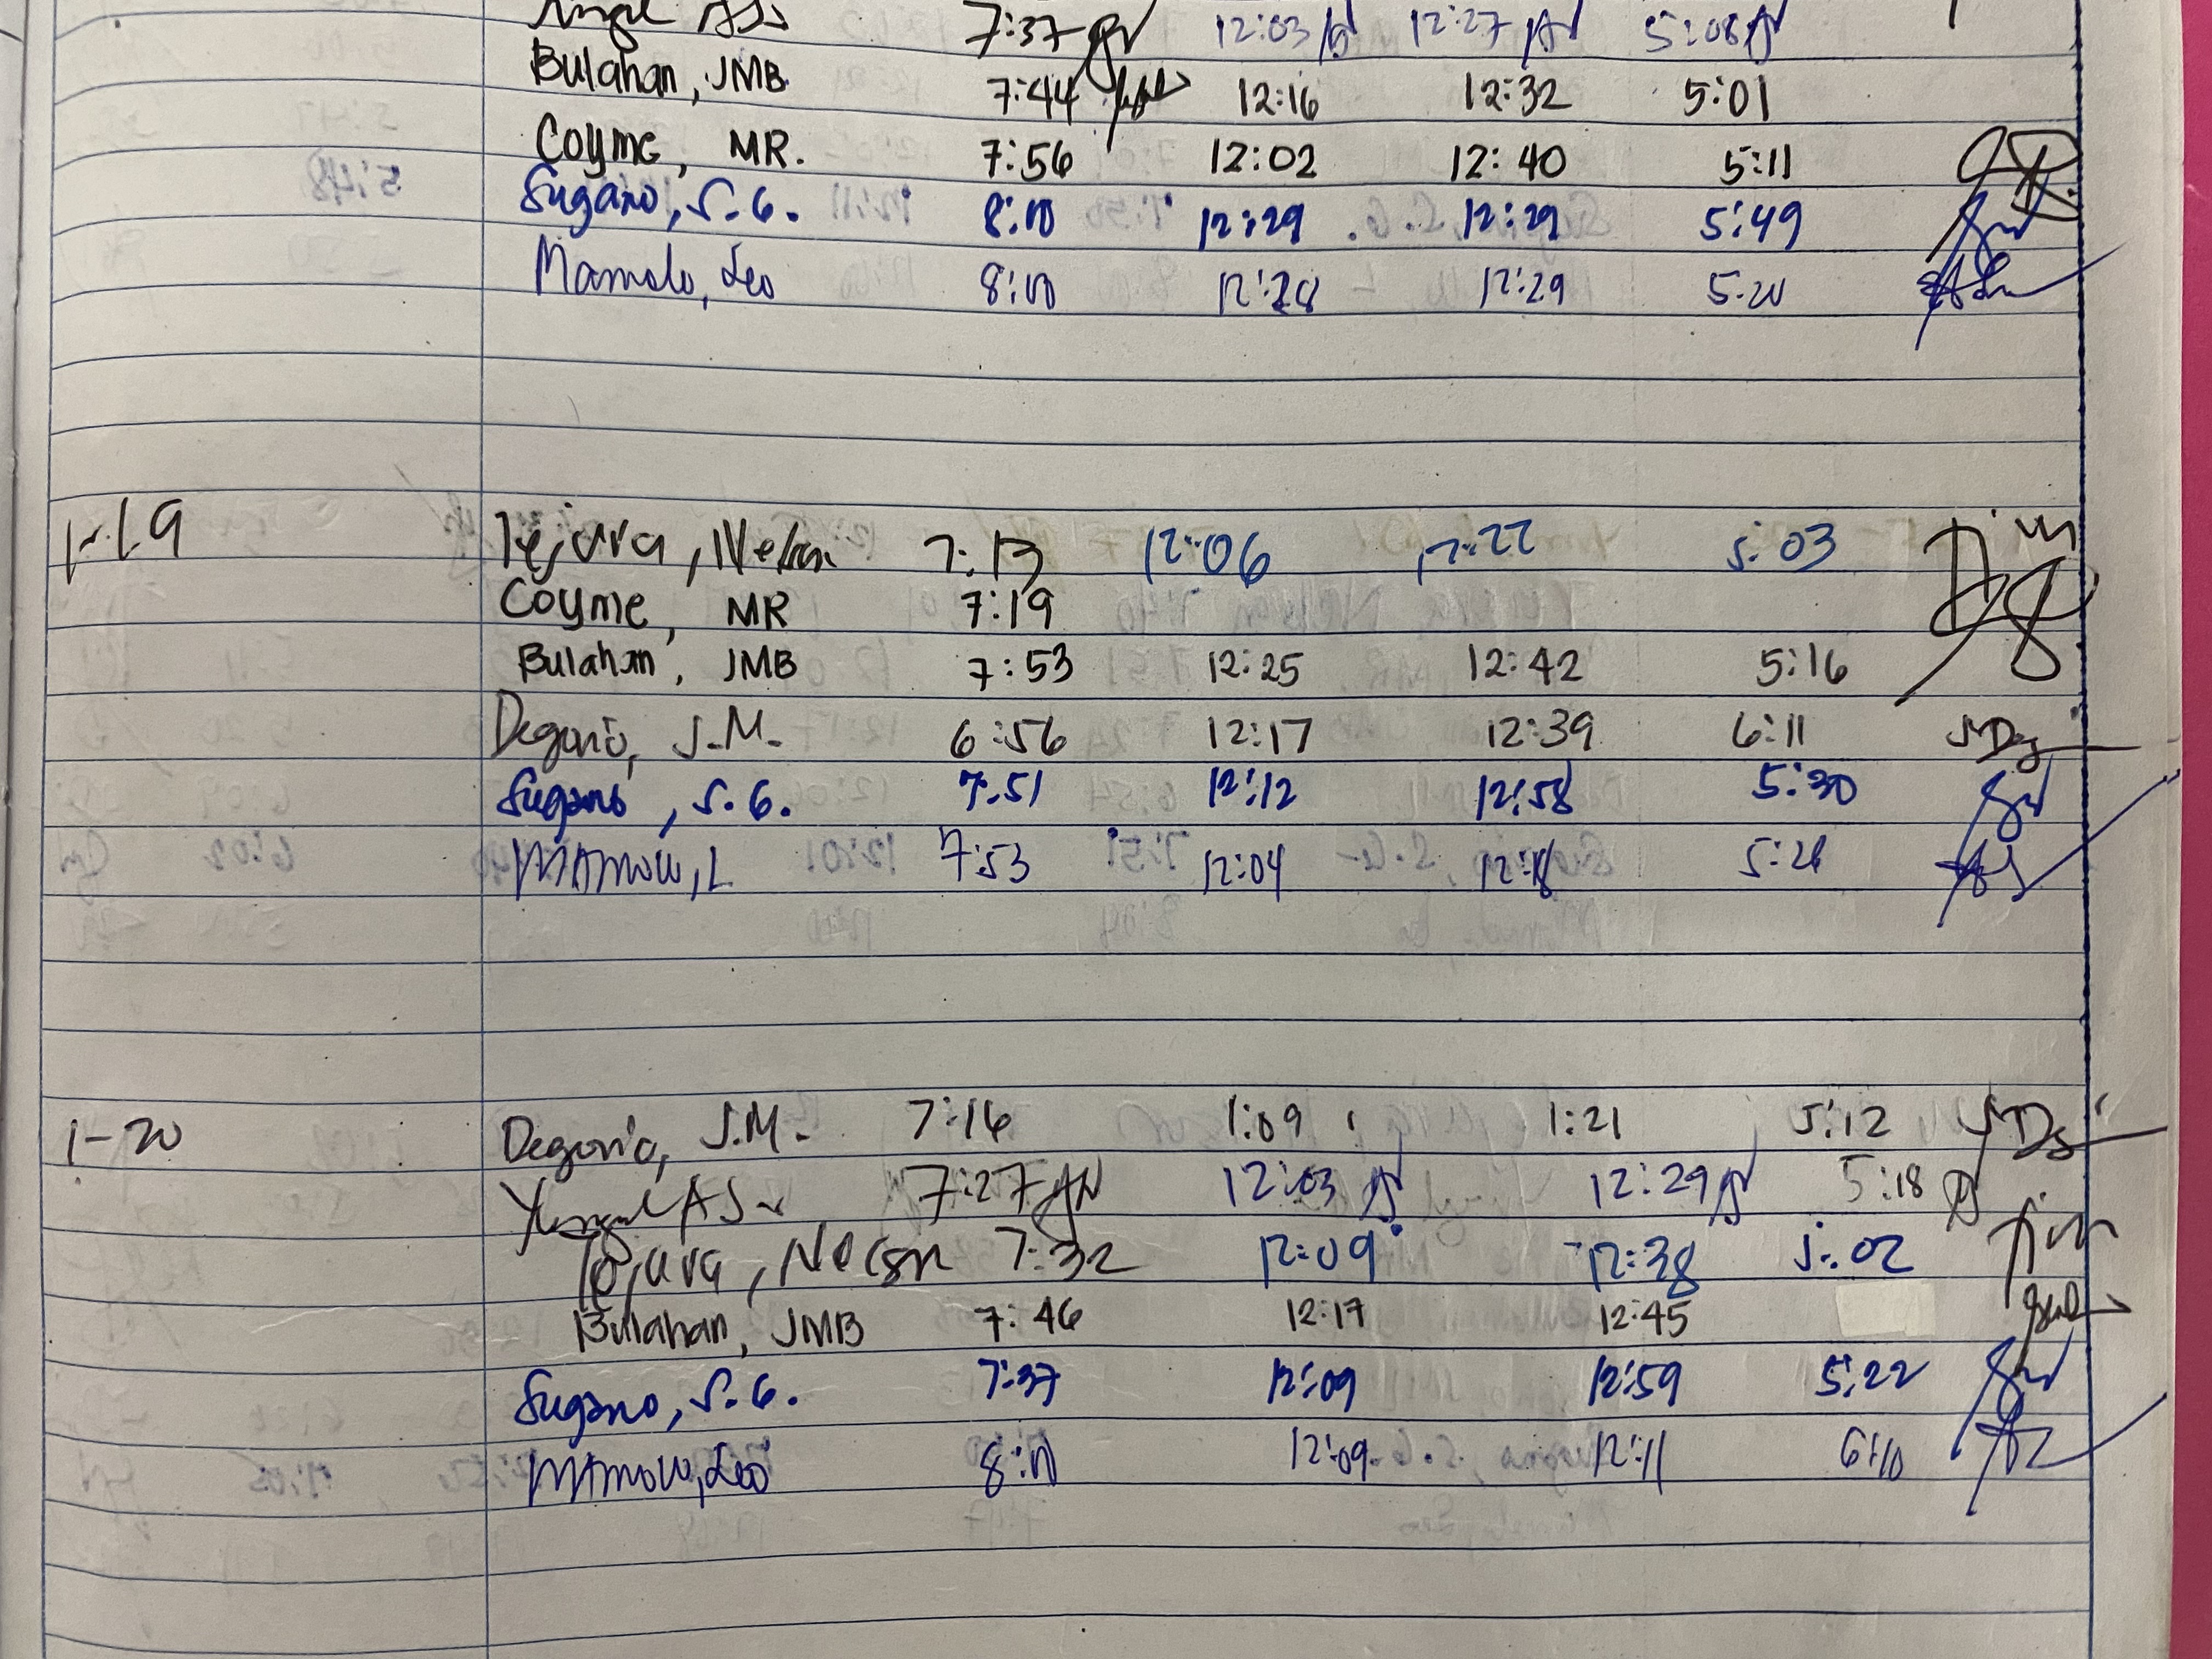 AS 7:37 12:03 12:27 5:08
Bulahan, JMB 7:44 12:16 12:32 5:01
Coyme, MR. 7:56 12:02 12:40 5:11
Sugano, S.G. 8:00 12:29 12:29 5:49
Mamolo, Leo 8:00 12:28 12:29 5:20
1-19 Tejura, Nelson 7:13 12:06 12:22 5:03
Coyme, MR 7:19
Bulahan, JMB 7:53 12:25 12:42 5:16
Degorio, J.M. 6:56 12:17 12:39 6:11
Sugano, S.G. 7:51 12:12 12:58 5:30
Mamolo, L 7:53 12:04 12:18
1-20 Degorio, J.M. 7:16 1:09 1:21 5:12
AS 7:27 12:03 12:29 5:18
Tejura, Nelson 7:32 12:09 12:38 5:02
Bulahan, JMB 7:46 12:17 12:45
Sugano, S.G. 7:37 12:09 12:59 5:22
Mamolo, Leo 8:00 12:09 12:11 6:10